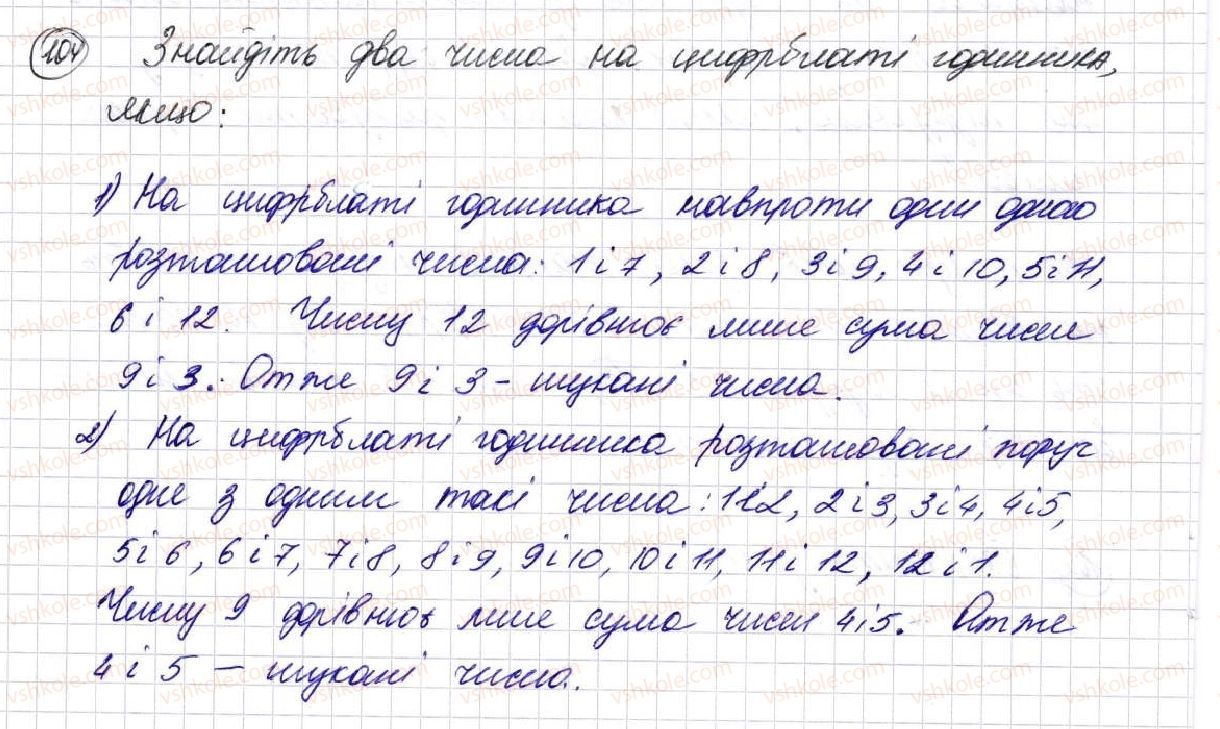 104 Знайдіть два числа на циферблаті годинника,
якщо:
1) На циферблаті годинника навпроти один одного
розташовані числа: 1 і 7, 2 і 8, 3 і 9, 4 і 10, 5 і 11,
6 і 12. Числу 12 дорівнює лише сума чисел
9 і 3. Отже 9 і 3 - шукані числа.
2) На циферблаті годинника розташовані поруч
одне з одним такі числа: 1 і 2, 2 і 3, 3 і 4, 4 і 5,
5 і 6, 6 і 7, 7 і 8, 8 і 9, 9 і 10, 10 і 11, 11 і 12, 12 і 1.
Числу 9 дорівнює лише сума чисел 4 і 5. Отже
4 і 5 – шукані числа.